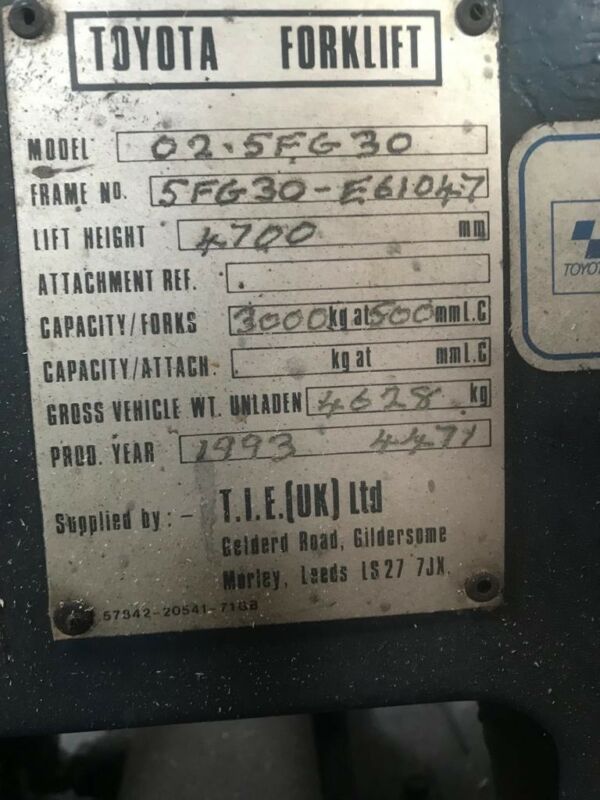 TOYOTA FORKLIFT
MODEL 02·5FG30
FRAME NO. 5FG30-E61047
LIFT HEIGHT 4700 mm
ATTACHMENT REF.
CAPACITY/FORKS 3000 kg at 500 mm L.C
CAPACITY/ATTACH. kg at mm L.C
GROSS VEHICLE WT. UNLADEN 4628 kg
PROD. YEAR 1993 4471
Supplied by :- T.I.E.(UK) Ltd
Gelderd Road, Gildersome
Morley, Leeds LS27 7JX.
57342-20541-71